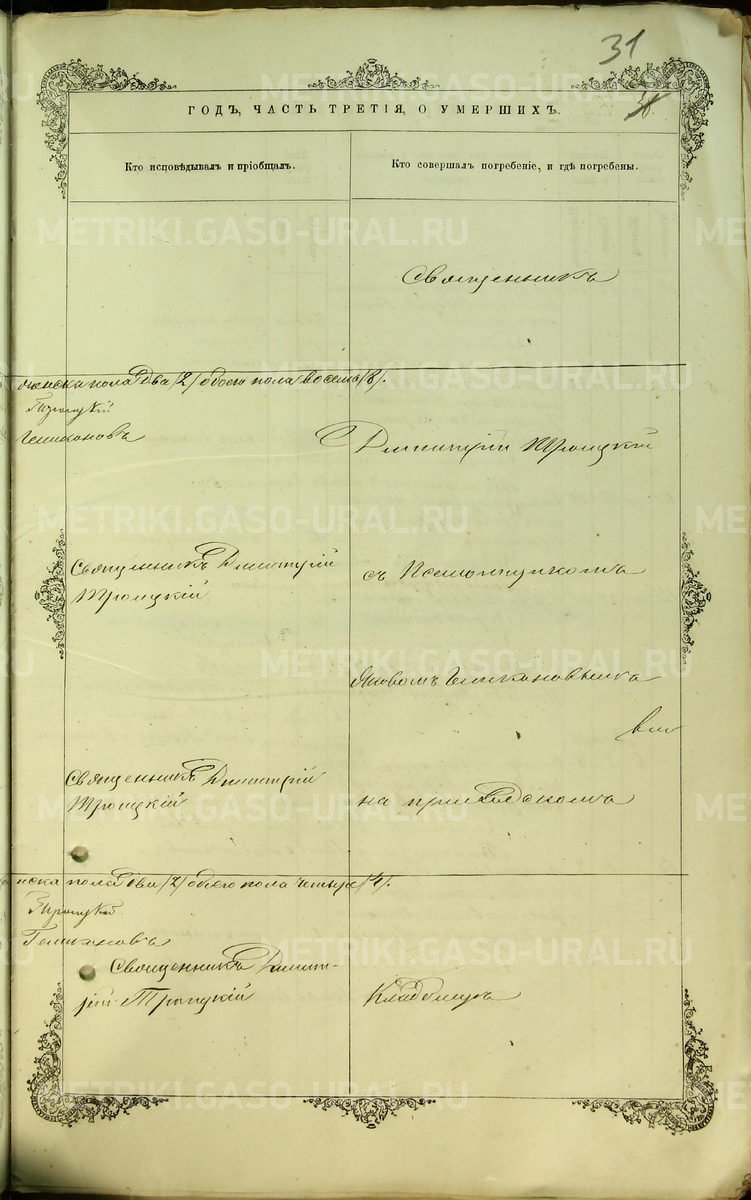 31
ГОДЪ, ЧАСТЬ ТРЕТІЯ, О УМЕРШИХЪ.
Кто исповѣдывалъ и пріобщалъ.
Кто совершалъ погребеніе, и гдѣ погребены.
Священникъ
женска пола два /2/ обоего пола восемь /8/.
Троицкій
Димитрій Троицкій
Священникъ Димитрій
Троицкій
съ Псаломщикомъ
Яковомъ
Священникъ Димитрій
Троицкій
на приходскомъ
пола два /2/ обоего пола четыре /4/.
Троицкій
Священникъ Димит-
рій Троицкій
Кладбищѣ
METRIKI.GASO-URAL.RU